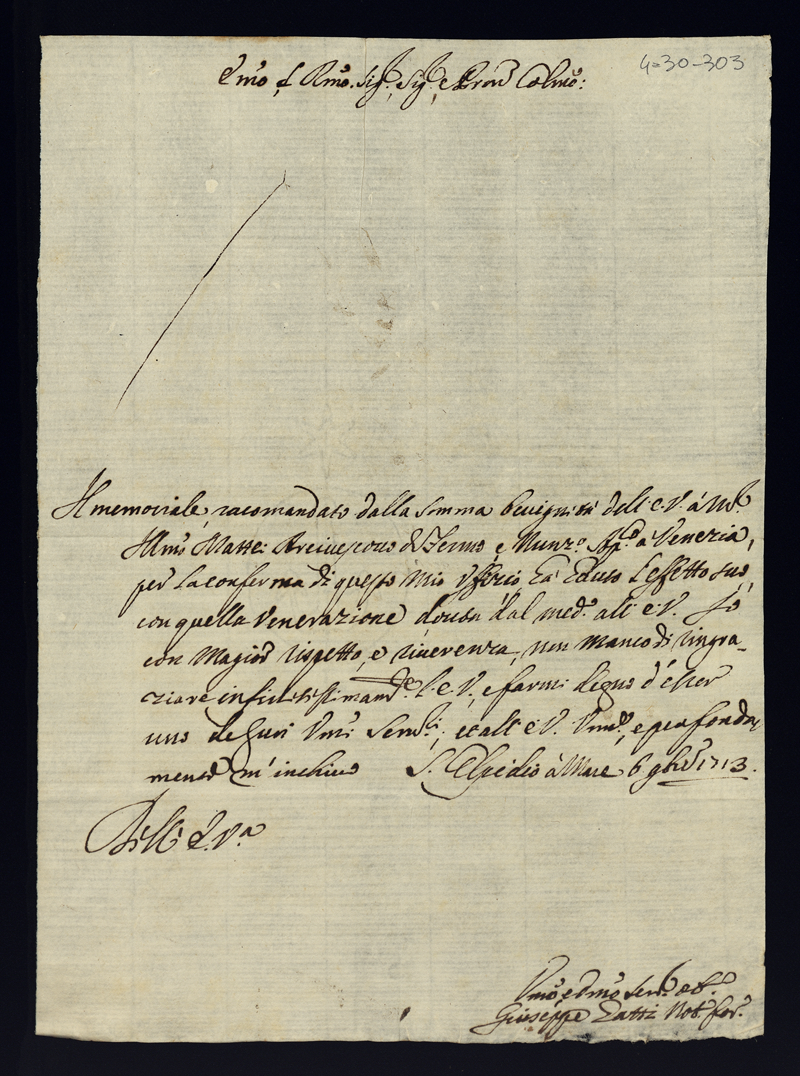 4-30-303
Emo e Rmo. Sig.r Sig.r e Pron Colmo:
Il memoriale, racomandato dalla somma benignità dell'E.V. á M.r
Illmo Mattei Arciuescouo di Fermo e Nunz.o Ap.co à Venezia,
per la conferma di questo mio Uffizio ha hauto l'effetto suo,
con quella Venerazione douuta dal med.o all'E.V. Io
con Magior rispetto, e riuerenza, non manco di ringra-
ziare infinitissimam.te l'E.V., e farmi degno d'esser
uno de suoi Vmi Seru.ri, et all'E.V. Vmil, e profonda
mente m'inchino S. Elpidio à Mare 6 9bre 1713.
Dell' E.V.a
Vmo, e Dmo seru.e ob.o
Giuseppe Not.